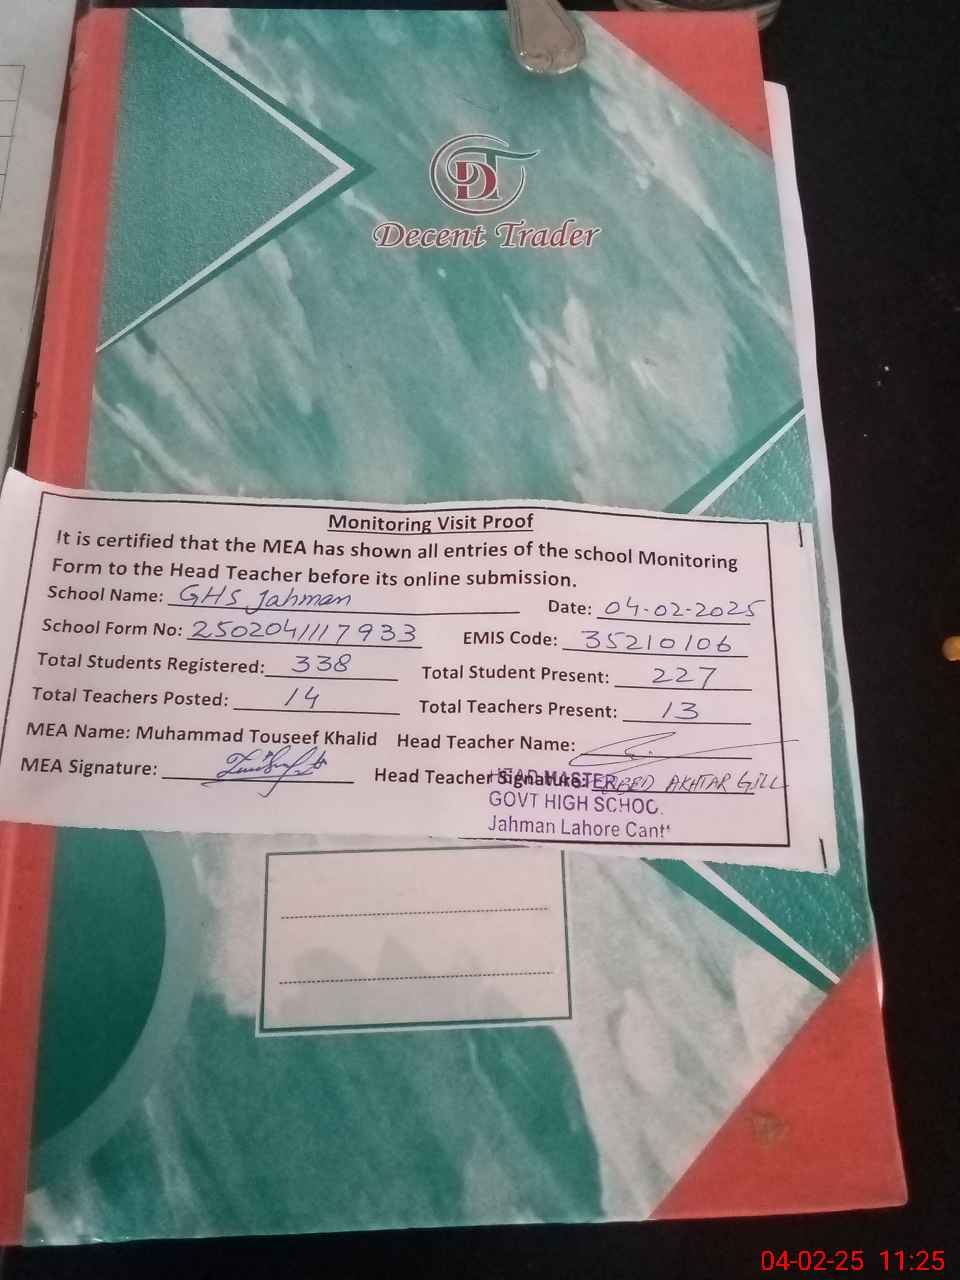 DT
Decent Trader
Monitoring Visit Proof
It is certified that the MEA has shown all entries of the school Monitoring
Form to the Head Teacher before its online submission.
School Name: GHS Jahman Date: 04-02-2025
School Form No: 2502041117933 EMIS Code: 35210106
Total Students Registered: 338 Total Student Present: 227
Total Teachers Posted: 14 Total Teachers Present: 13
MEA Name: Muhammad Touseef Khalid Head Teacher Name:
MEA Signature: Head Teacher Signature: AKHTAR GILL
HEAD MASTER
GOVT HIGH SCHOOL
Jahman Lahore Cantt
04-02-25 11:25